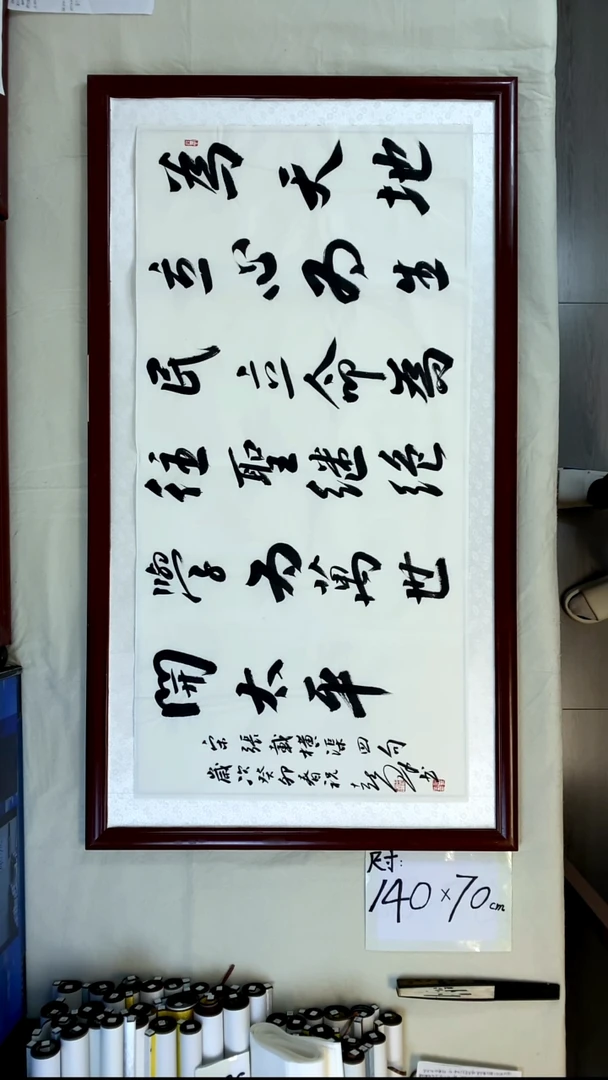 為天地
立心为生
民立命為
往聖继绝
學为萬世
開太平
宋張載横渠四句
歲次癸卯春
尺寸:
140×70cm